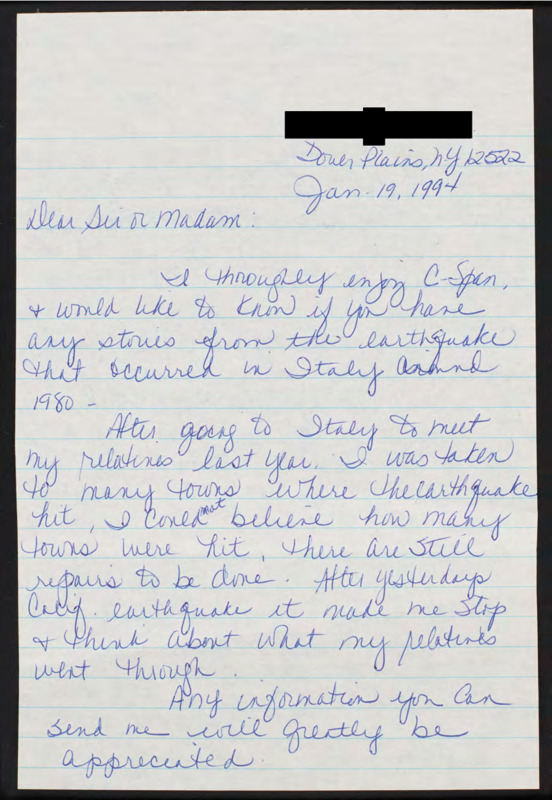 Dover Plains, NY 12522
Jan. 19, 1994
Dear Sir or Madam:
I throughly enjoy C-Span,
& would like to know if you have
any stories from the earthquake
that occurred in Italy around
1980 -
After going to Italy to meet
my relatives last year, I was taken
to many towns where the earthquake
hit, I could not believe how many
towns were hit, there are still
repairs to be done. After yesterdays
Calif. earthquake it made me stop
& think about what my relatives
went through.
Any information you can
send me will greatly be
appreciated.